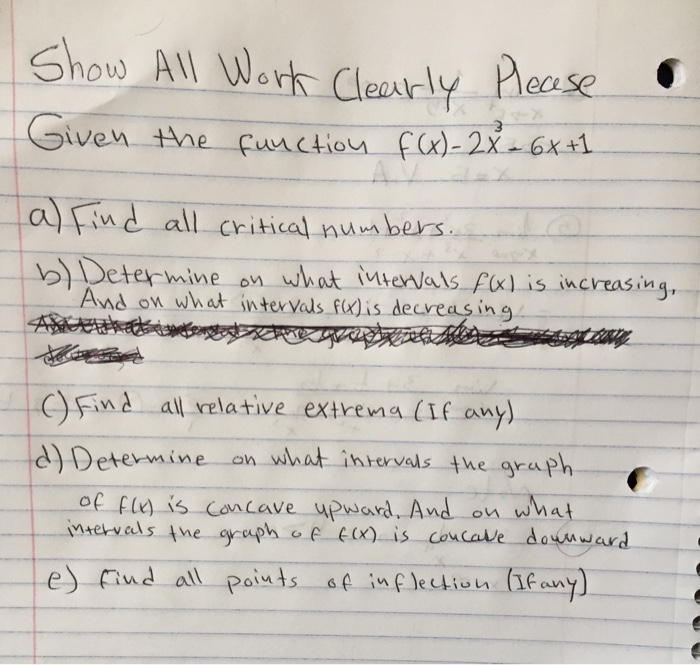 Show All Work Clearly Please
Given the function f(x)-2x³-6x+1
a) Find all critical numbers.
b) Determine on what intervals f(x) is increasing,
And on what intervals f(x) is decreasing.
c) Find all relative extrema (If any)
d) Determine on what intervals the graph
of f(x) is concave upward. And on what
intervals the graph of f(x) is concave downward
e) find all points of inflection (If any)